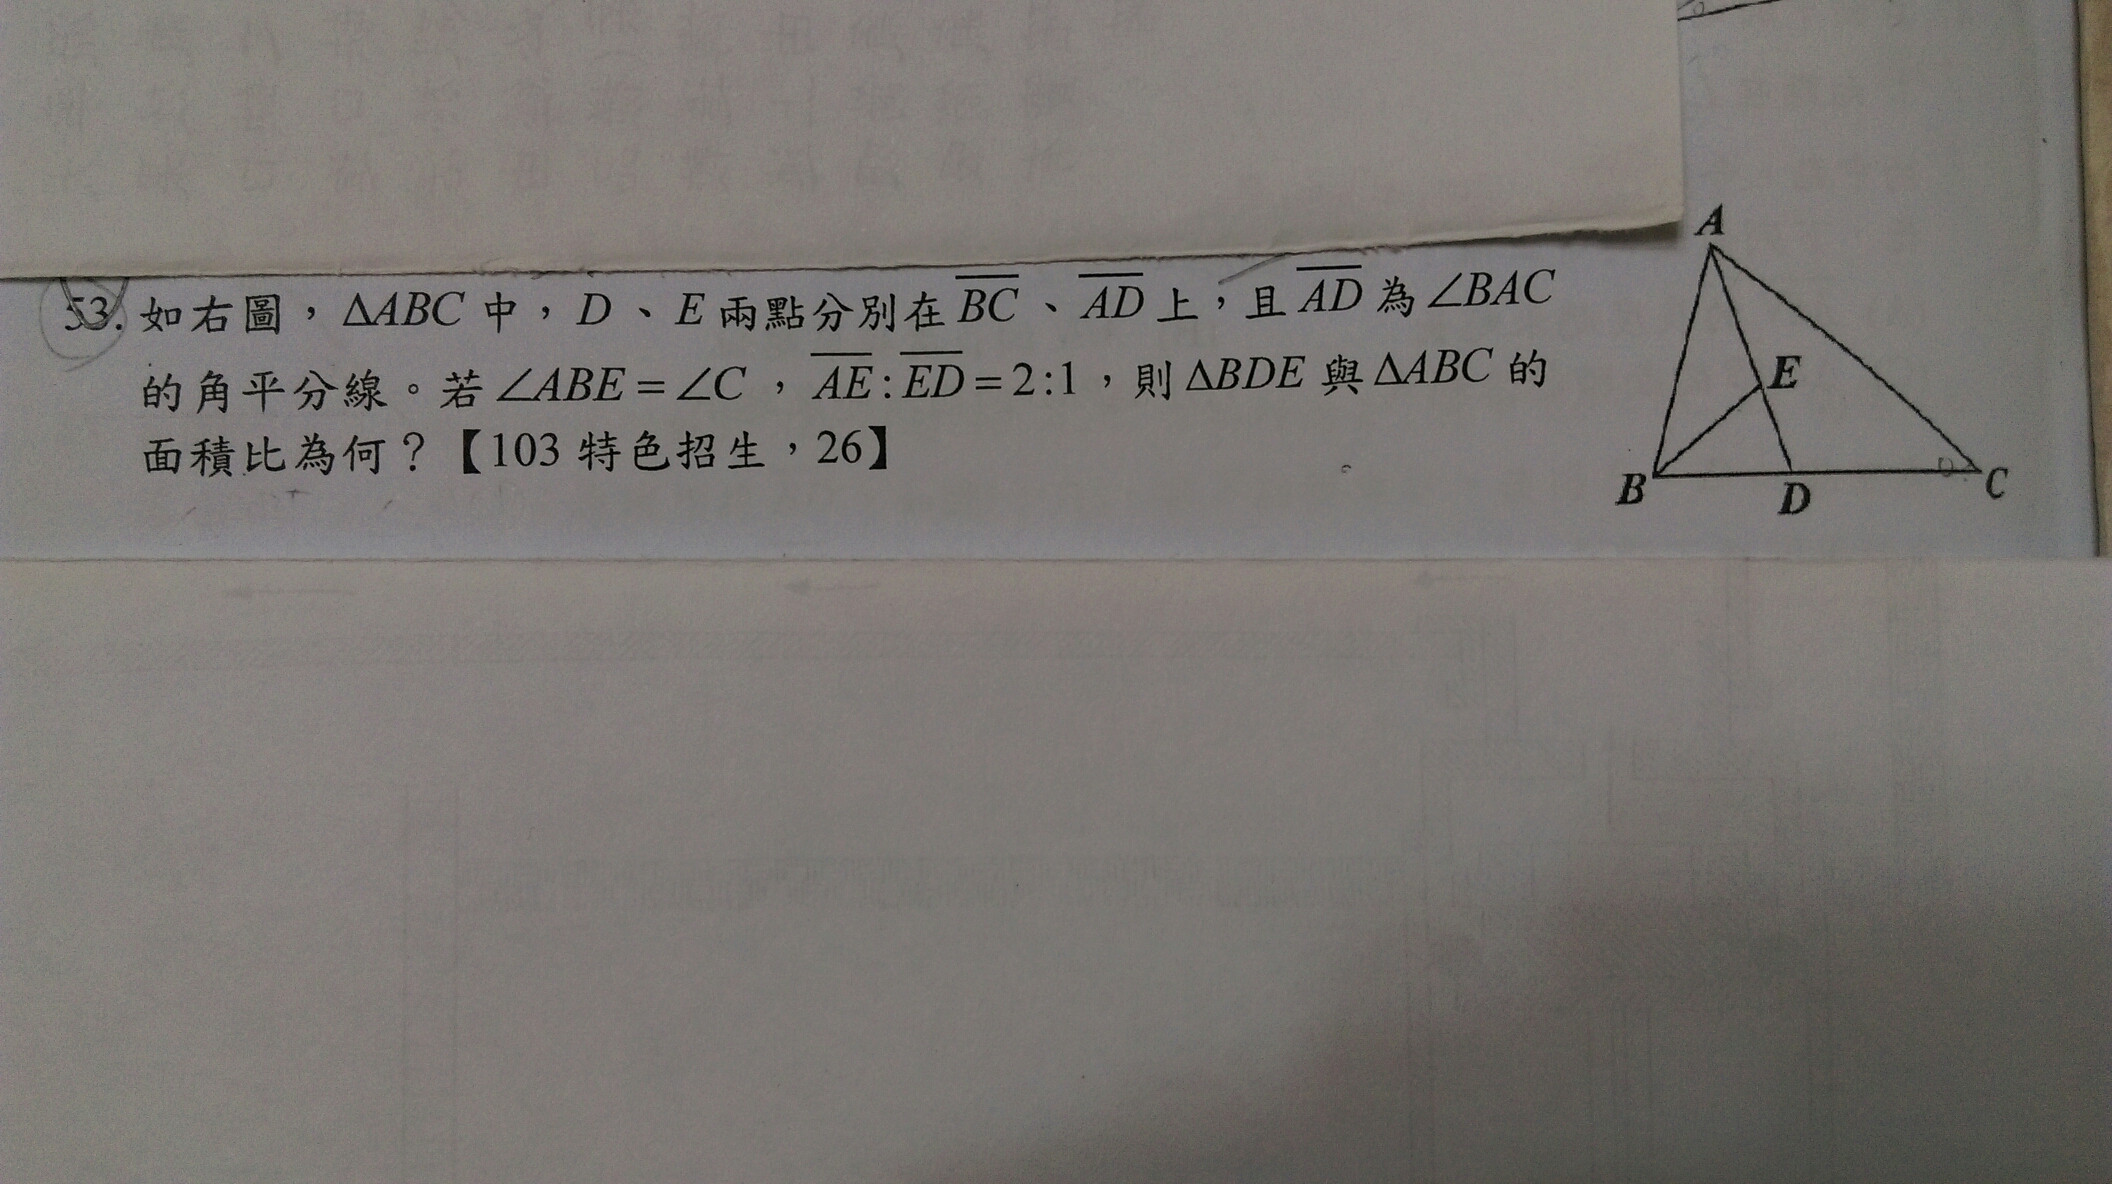 53. 如右圖，ΔABC 中，D、E 兩點分別在 BC、AD 上，且 AD 為 ∠BAC
的角平分線。若 ∠ABE = ∠C，AE : ED = 2 : 1，則 ΔBDE 與 ΔABC 的
面積比為何？【103 特色招生，26】
A
E
B
D
C